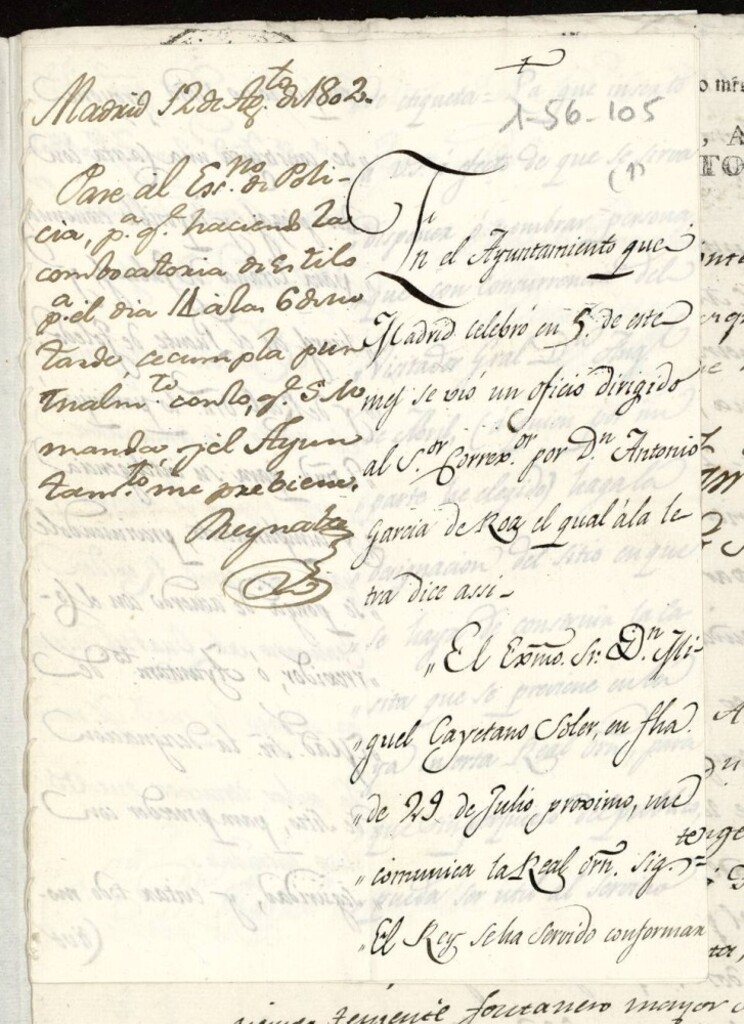 Madrid 12 de Ag.to de 1802.
Pase al Esc.no de Poli-
cia, p.a q.e haciendo la
combocatoria de estilo
p.a el dia 14 a las 6 de su
tarde, se cumpla pun
tualm.te con lo q.e S. M.
manda y el Ayun
tam.to me previene.
Reynalte
1-56-105
(1)
En el Ayuntamiento que
Madrid celebró en 5. de este
mes se vió un oficio dirigido
al S.or Correx.or por D.n Antonio
Garcia de Roz el qual á la le
tra dice assi_
„El Exmo. Sr. D.n Mi-
„guel Cayetano Soler, en fha.
„de 29 de Julio proximo, me
„comunica la Real orn. sig.te=
„El Rey se ha servido conforman
teniente fontanero mayor